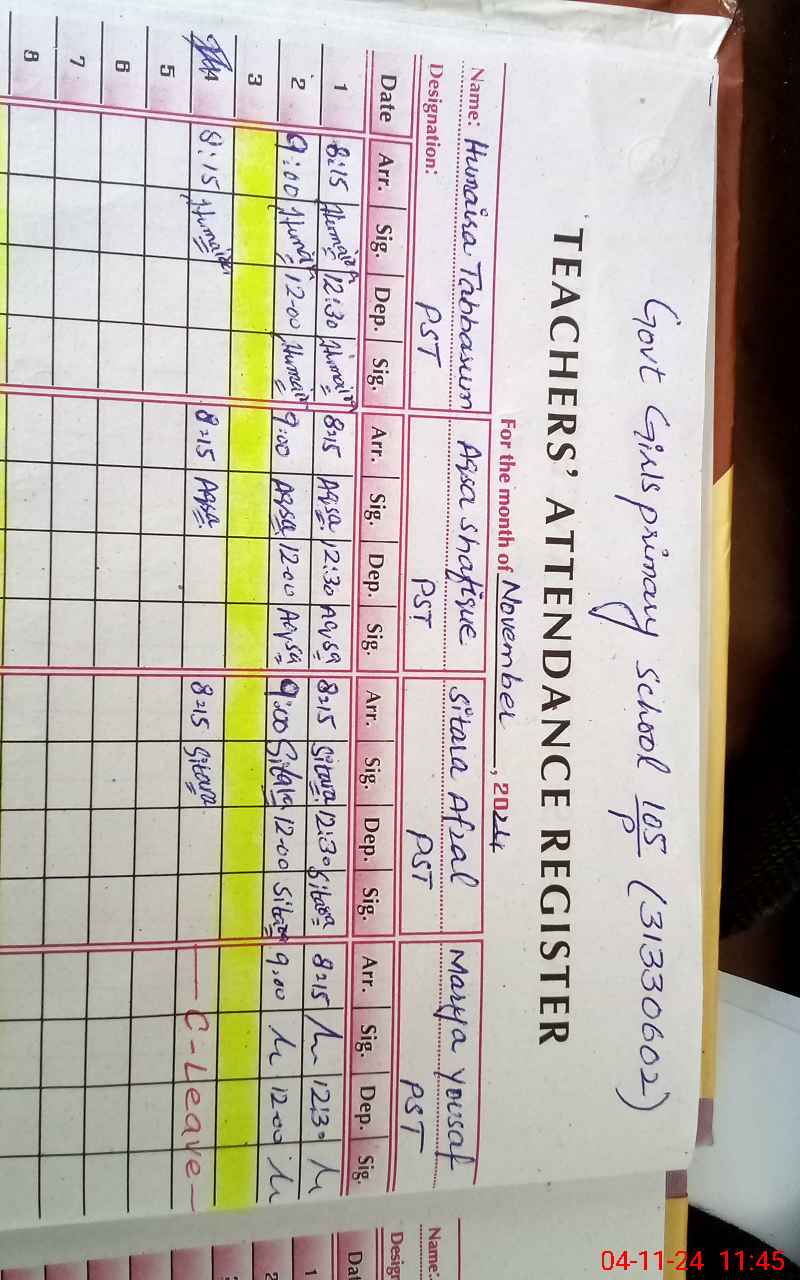 Govt Girls primary School 105/P (31330602)
TEACHERS' ATTENDANCE REGISTER
For the month of November, 2024
Name: Humaira Tabbasum Aqsa Shafique Sitara Afzal Marya Yousaf
Designation: PST PST PST PST
Date Arr. Sig. Dep. Sig. Arr. Sig. Dep. Sig. Arr. Sig. Dep. Sig. Arr. Sig. Dep. Sig.
1 8:15 Humaira 12:30 Humaira 8:15 Aqsa 12:30 Aqsa 8:15 Sitara 12:30 Sitara 8:15 12:30
2 9:00 Humaira 12:00 Humaira 9:00 Aqsa 12:00 Aqsa 9:00 Sitara 12:00 Sitara 9:00 12:00
3
4 8:15 Humaira 8:15 Aqsa 8:15 Sitara C-Leave
5
6
7
8
Name:
Desig
Dat
1
2
04-11-24 11:45